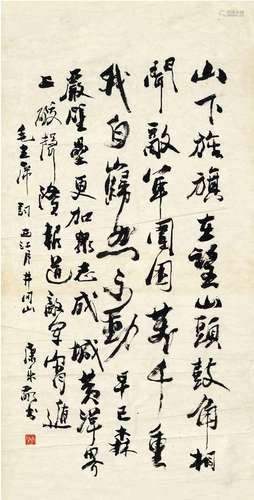 山下旌旗在望山頭鼓角相
聞敵軍圍困萬千重
我自巋然不動早已森
嚴壁壘更加衆志成城黄洋界
上礮聲隆報道敵軍宵遁
毛主席詞西江月井冈山
康